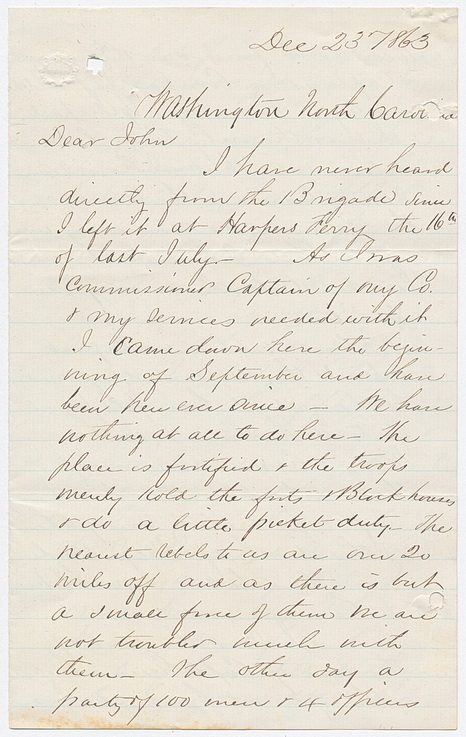 Dec 23rd 1863
Washington North Carolina
Dear John
I have never heard
directly from the Brigade since
I left it at Harpers Ferry the 16th
of last July - As I was
Commissioned Captain of my Co.
& my services needed with it
I came down here the begin-
ning of September and have
been here ever since - We have
nothing at all to do here - The
place is fortified & the troops
merely hold the forts & Block houses
& do a little picket duty - The
nearest rebels to us are over 20
miles off and as there is but
a small force of them we are
not troubled much with
them - The other day a
party of 100 men & 4 officers